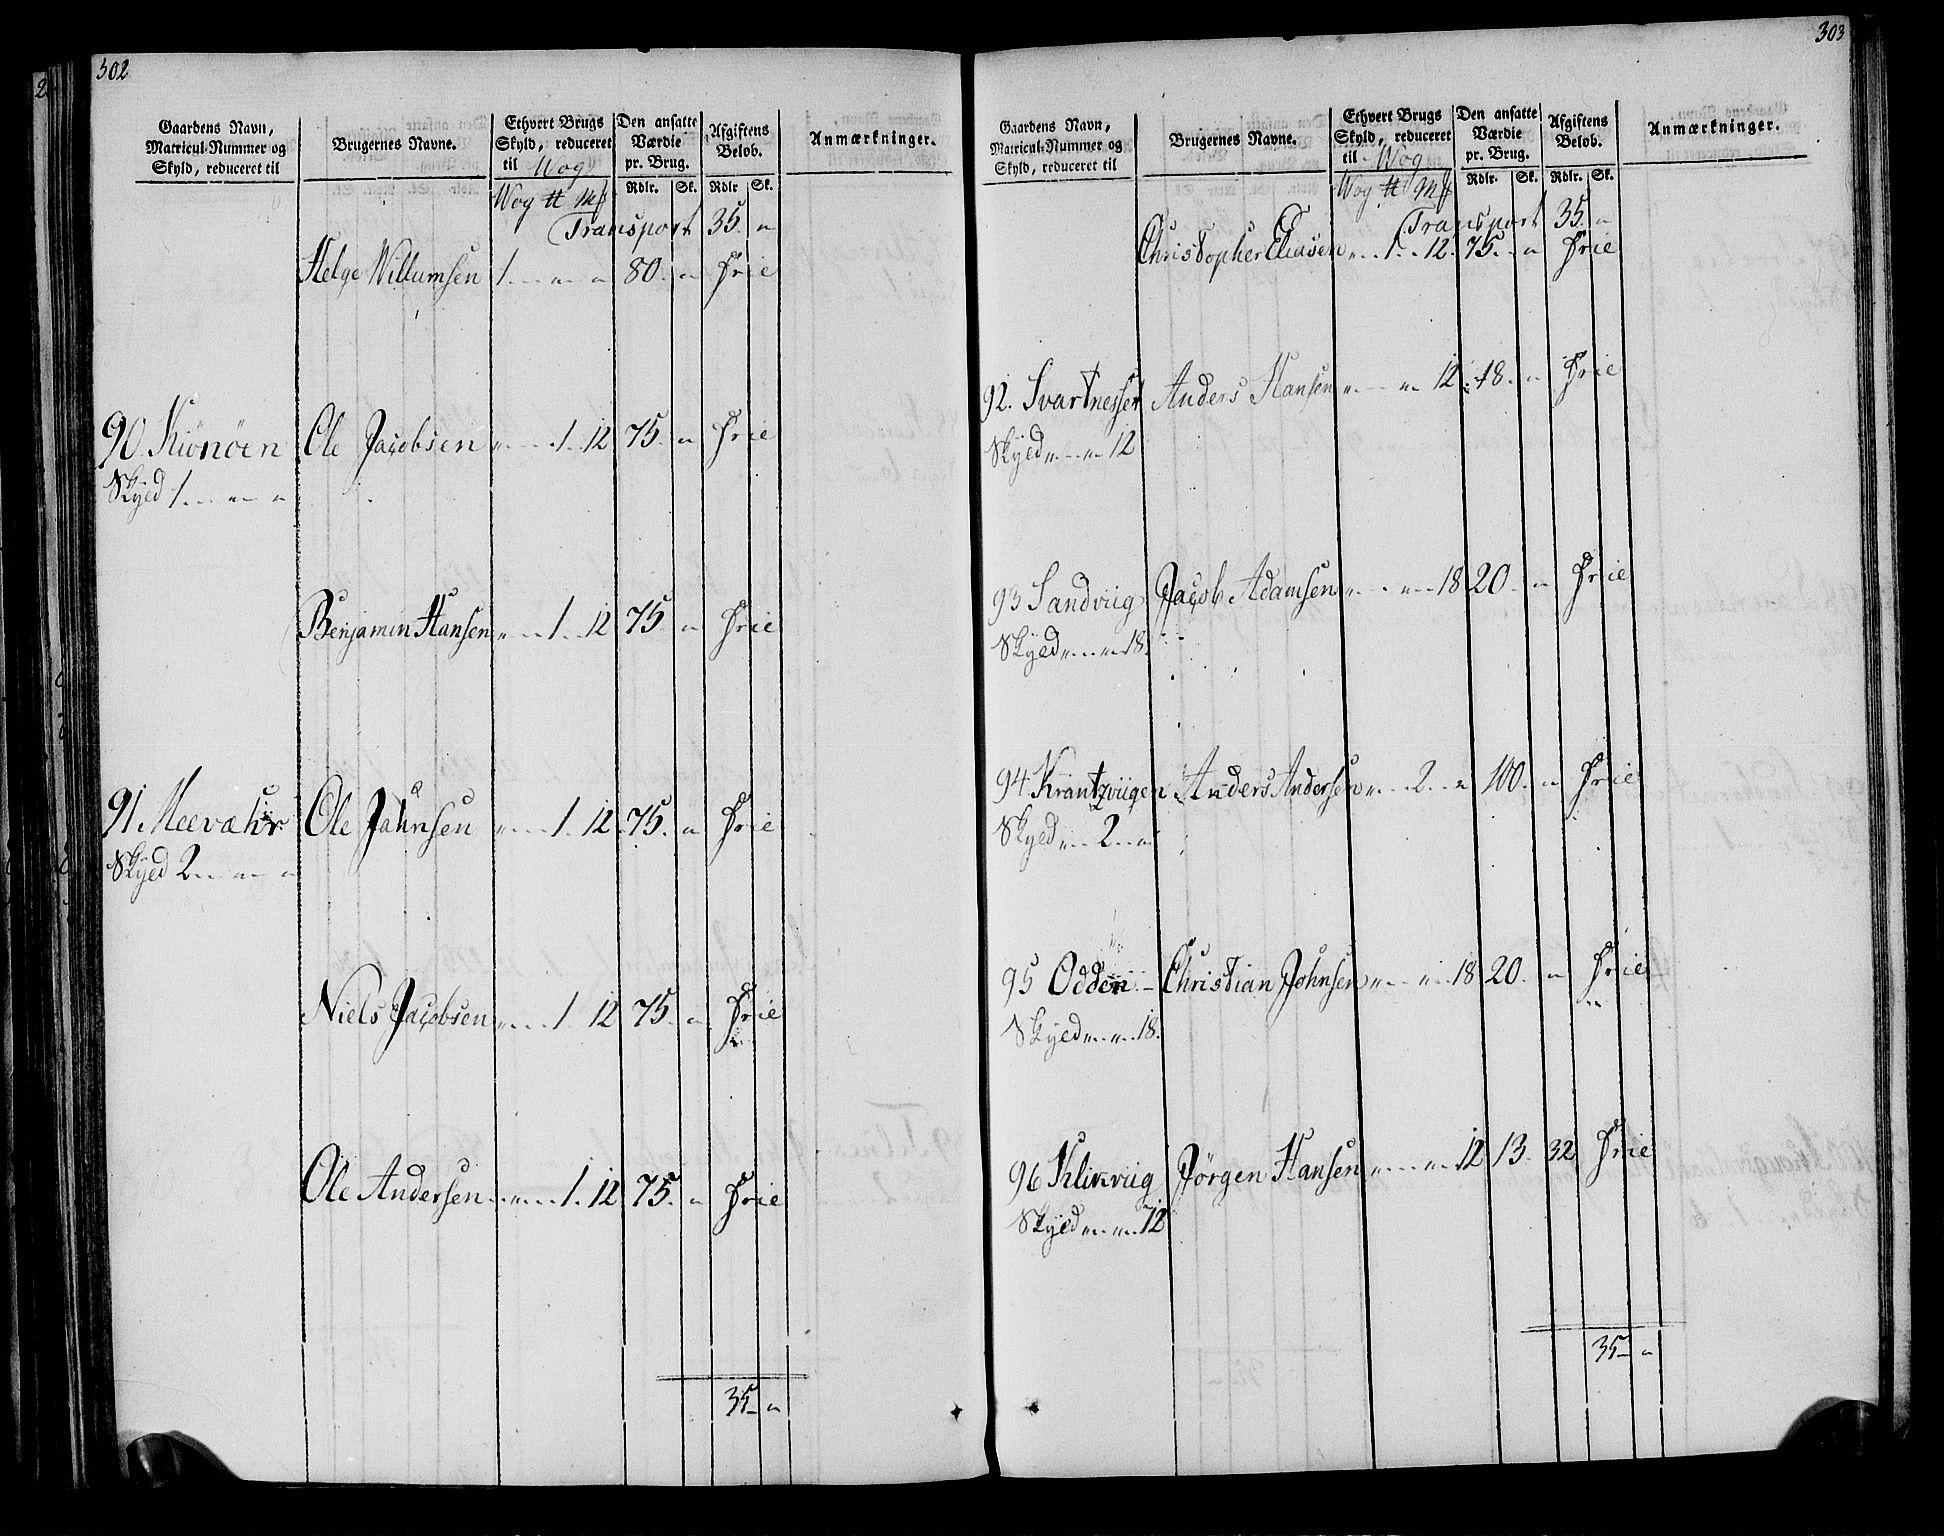 302
Gaardens Navn, Matricul-Nummer og Skyld, reduceret til | Brugernes Navne. | Ethvert Brugs Skyld, reduceret til Wog | Den ansatte Værdie pr. Brug. | Afgiftens Belob. | Anmærkninger.
Wog ℔ Mk | Rdlr. Sk. | Rdlr Sk.
Transport 35. "
Helge Willumsen 1. " " 80. " Frie
90. Kiönöen Ole Jacobsen " 1. 12 75. " Frie
Skyld 1. " "
Benjamin Hansen " 1. 12 75. " Frie
91. Meevahr Ole Jahnsen " 1. 12 75. " Frie
Skyld 2. " "
Niels Jacobsen " 1. 12 75. " Frie
Ole Andersen " 1. 12 75. " Frie
35 "
303
Gaardens Navn, Matricul-Nummer og Skyld, reduceret til | Brugernes Navne. | Ethvert Brugs Skyld, reduceret til Wog | Den ansatte Værdie pr. Brug. | Afgiftens Belob. | Anmærkninger.
Wog ℔ Mk | Rdlr. Sk. | Rdlr. Sk.
Transport 35. "
Christopher Eliasen " 1. 12. 75. " Frie
92. Svartnesset Anders Hansen " " 12 18. " Frie
Skyld " " 12
93 Sandviig Jacob Adamsen " " 18 20. " Frie
Skyld " " 18.
94 Krantzviigen Anders Andersen " 2. " 100. " Frie
Skyld " 2. "
95 Odden Christian Johnsen " " 18 20. " Frie
Skyld " " 18.
96 Klikviig Jörgen Hansen " " 12 13. 32 Frie
Skyld " " 12
35 "